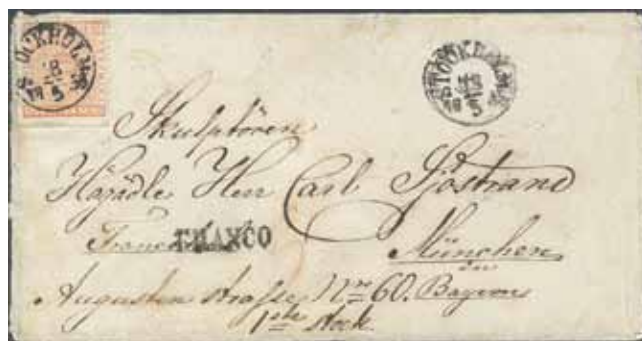 STOCKHOLM
18
5
STOCKHOLM
18
5
Skulptören
Högädle Herr Carl Sjöstrand
FRANCO
München
Bayern
Augusten strasse Nro 60.
1ste stock.